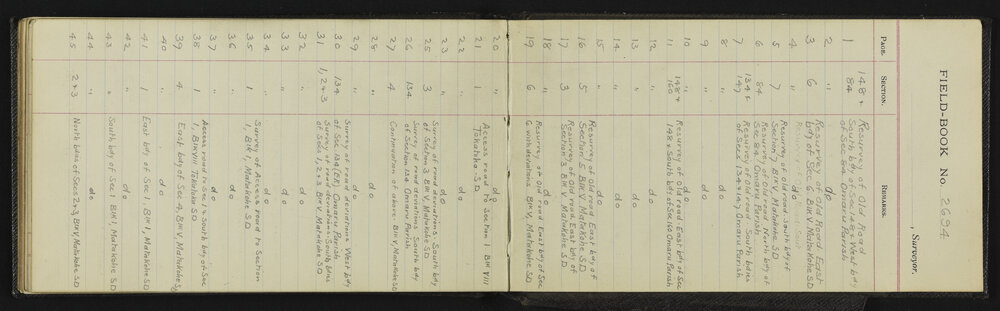 FIELD-BOOK No. 2694
, Surveyor.
PAGE. SECTION. REMARKS.
1 148 & 84 Resurvey of Old Road South bdy of Sec 148 & West bdy
of Sec 84 Omaru Parish
2 " do
3 6 Resurvey of Old Road East
bdy of Sec 6 Blk V Matakohe SD
4 " do
5 7 Resurvey of Old road South bdy of
Section 7, Blk V, Matakohe SD
6 84 Resurvey of Old road North bdy of
Sec 84, Omaru Parish
7 134 & 147 Resurvey of Old road South bdries
of Secs 134 & 147, Omaru Parish
8 " do
9 " do
10 " do
11 148 & 160 Resurvey of Old road East bdy of Sec
148 & South bdy of Sec 160 Omaru Parish
12 " do
13 " do
14 " do
15 " do
16 5 Resurvey of Old road East bdy of
Section 5 Blk V Matakohe SD
17 3 Resurvey of Old road, East bdy of
Section 3 Blk V, Matakohe SD
18 " do
19 6 Resurvey of Old road East bdy of Sec
6 with deviations Blk V, Matakohe SD
20 " do
21 1 Access road to Section 1 Blk VIII
Tokatoka S.D.
22 " do
23 " do
25 3 Survey of road deviations, South bdy
of Section 3 Blk V, Matakohe SD
26 134 Survey of road deviations South bdy
of Section 134 Omaru Parish
27 4 Continuation of above Blk V, Matakohe SD
28 " do
29 " do
30 134 Survey of road deviations West bdy
of Sec 134 Omaru Parish
31 1, 2 & 3 Survey of road deviations South bdries
of Secs 1, 2 & 3 Blk V, Matakohe SD
32 " do
33 " do
34 " do
35 1 Survey of Access road to Section
1, Blk 1, Matakohe SD
36 " do
37 " do
38 1 Access road to Sec 1 & South bdy of Sec
1, Blk VIII Tokatoka SD
39 4 East bdy of Sec 4, Blk V, Matakohe SD
40 " do
41 1 East bdy of Sec 1, Blk 1, Matakohe SD
42 " do
43 " South bdy of Sec 1 Blk 1, Matakohe SD
44 " do
45 2 & 3 North bdries of Secs 2 & 3, Blk V, Matakohe SD